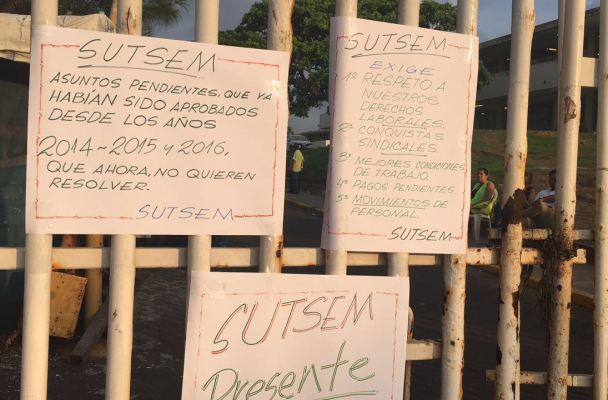 SUTSEM
ASUNTOS PENDIENTES, QUE YA
HABÍAN SIDO APROBADOS
DESDE LOS AÑOS
2014~2015 y 2016,
QUE AHORA, NO QUIEREN
RESOLVER.
SUTSEM
SUTSEM
EXIGE
1º RESPETO A
NUESTROS
DERECHOS
LABORALES.
2º CONQUISTAS
SINDICALES
3º MEJORES CONDICIONES
DE TRABAJO.
4º PAGOS PENDIENTES
5º MOVIMIENTOS DE
PERSONAL.
SUTSEM
SUTSEM
Presente